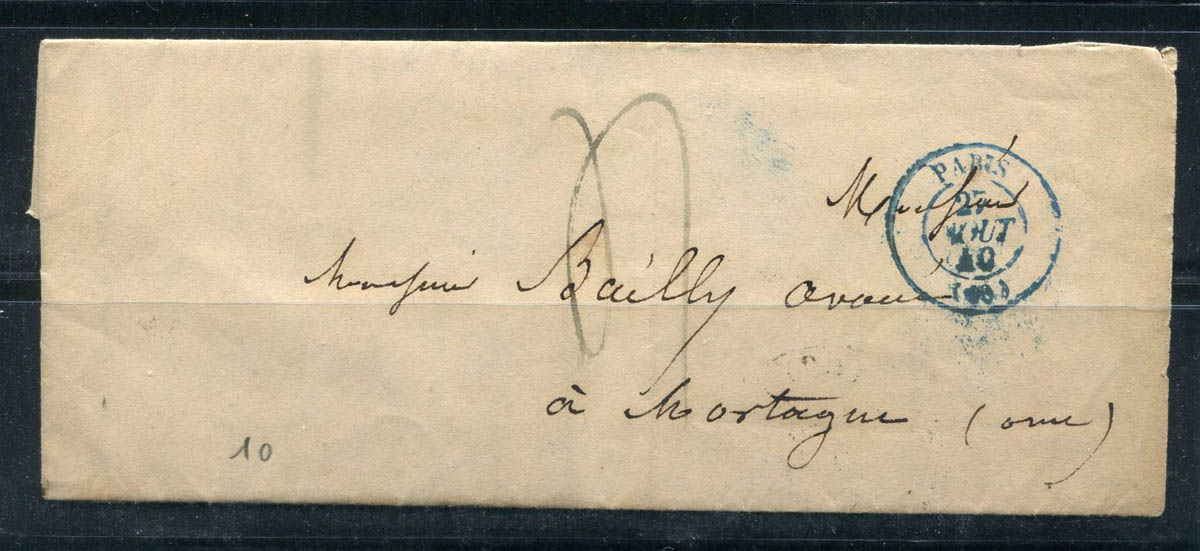 Monsieur
PARIS
27
AOUT
40
(60)
Monsieur Bailly avoué
à Mortagne (orne)
10